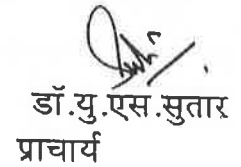 डॉ.यु.एस.सुतार
प्राचार्य